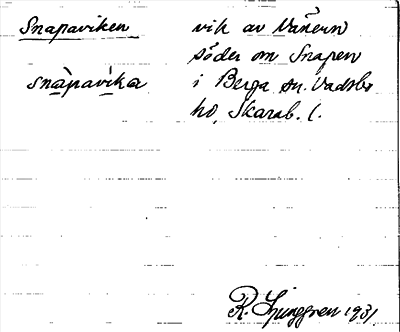 Snapaviken vik av Vänern
söder om Snapen
snàpavìka i Berga sn. Vadsbo
hd, Skarab. l.
R. Ljunggren 1931